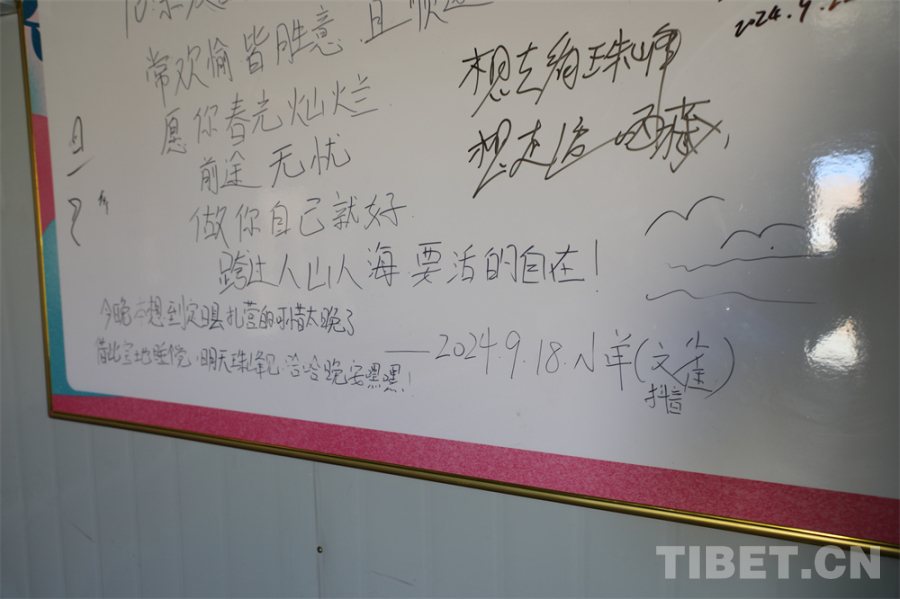 常欢愉皆胜意 且顺遂
愿你春光灿烂
前途无忧
做你自己就好
跨过人山人海 要活的自在！
今晚本想到定日县扎营的可惜太晚了
借此宝地睡觉，明天珠峰见·哈哈晚安嘿嘿！
——2024.9.18.小羊(文金)
抖音
2024.9.22
想去绚珠峰
想走
TIBET.CN